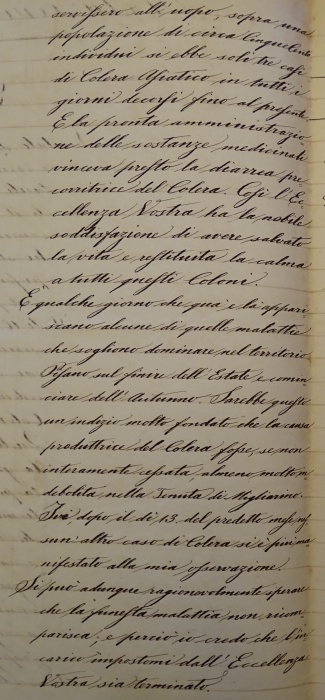 servissero all'uopo, sopra una
popolazione di circa cinquecento
individui si ebbe soli tre casi
di Colera Asiatico in tutti i
giorni decorsi fino al presente.
E la pronta amministrazio-
ne delle sostanze medicinali
vinceva presto la diarrea pre-
corritrice del Colera. Così l'Ec-
cellenza Vostra ha la nobile
soddisfazione di avere salvato
la vita e restituita la calma
a tutti questi Coloni.
È qualche giorno che qua e là appari
scano alcune di quelle malattie
che sogliono dominare nel territorio
Pisano sul finire dell'Estate e comin
ciare dell'Autunno. Sarebbe questo
un indizio molto fondato che la causa
produttrice del Colera fosse, se non
interamente cessata, almeno molto in
debolita nella Tenuta di Migliarino.
Ivi dopo il dì 13. del predetto mese nes
sun'altro caso di Colera si è più ma
nifestato alla mia osservazione.
Si può adunque ragionevolmente sperare
che la funesta malattia non ricom
parisca, e perciò io credo che l'in
carico impostomi dall'Eccellenza
Vostra sia terminato.